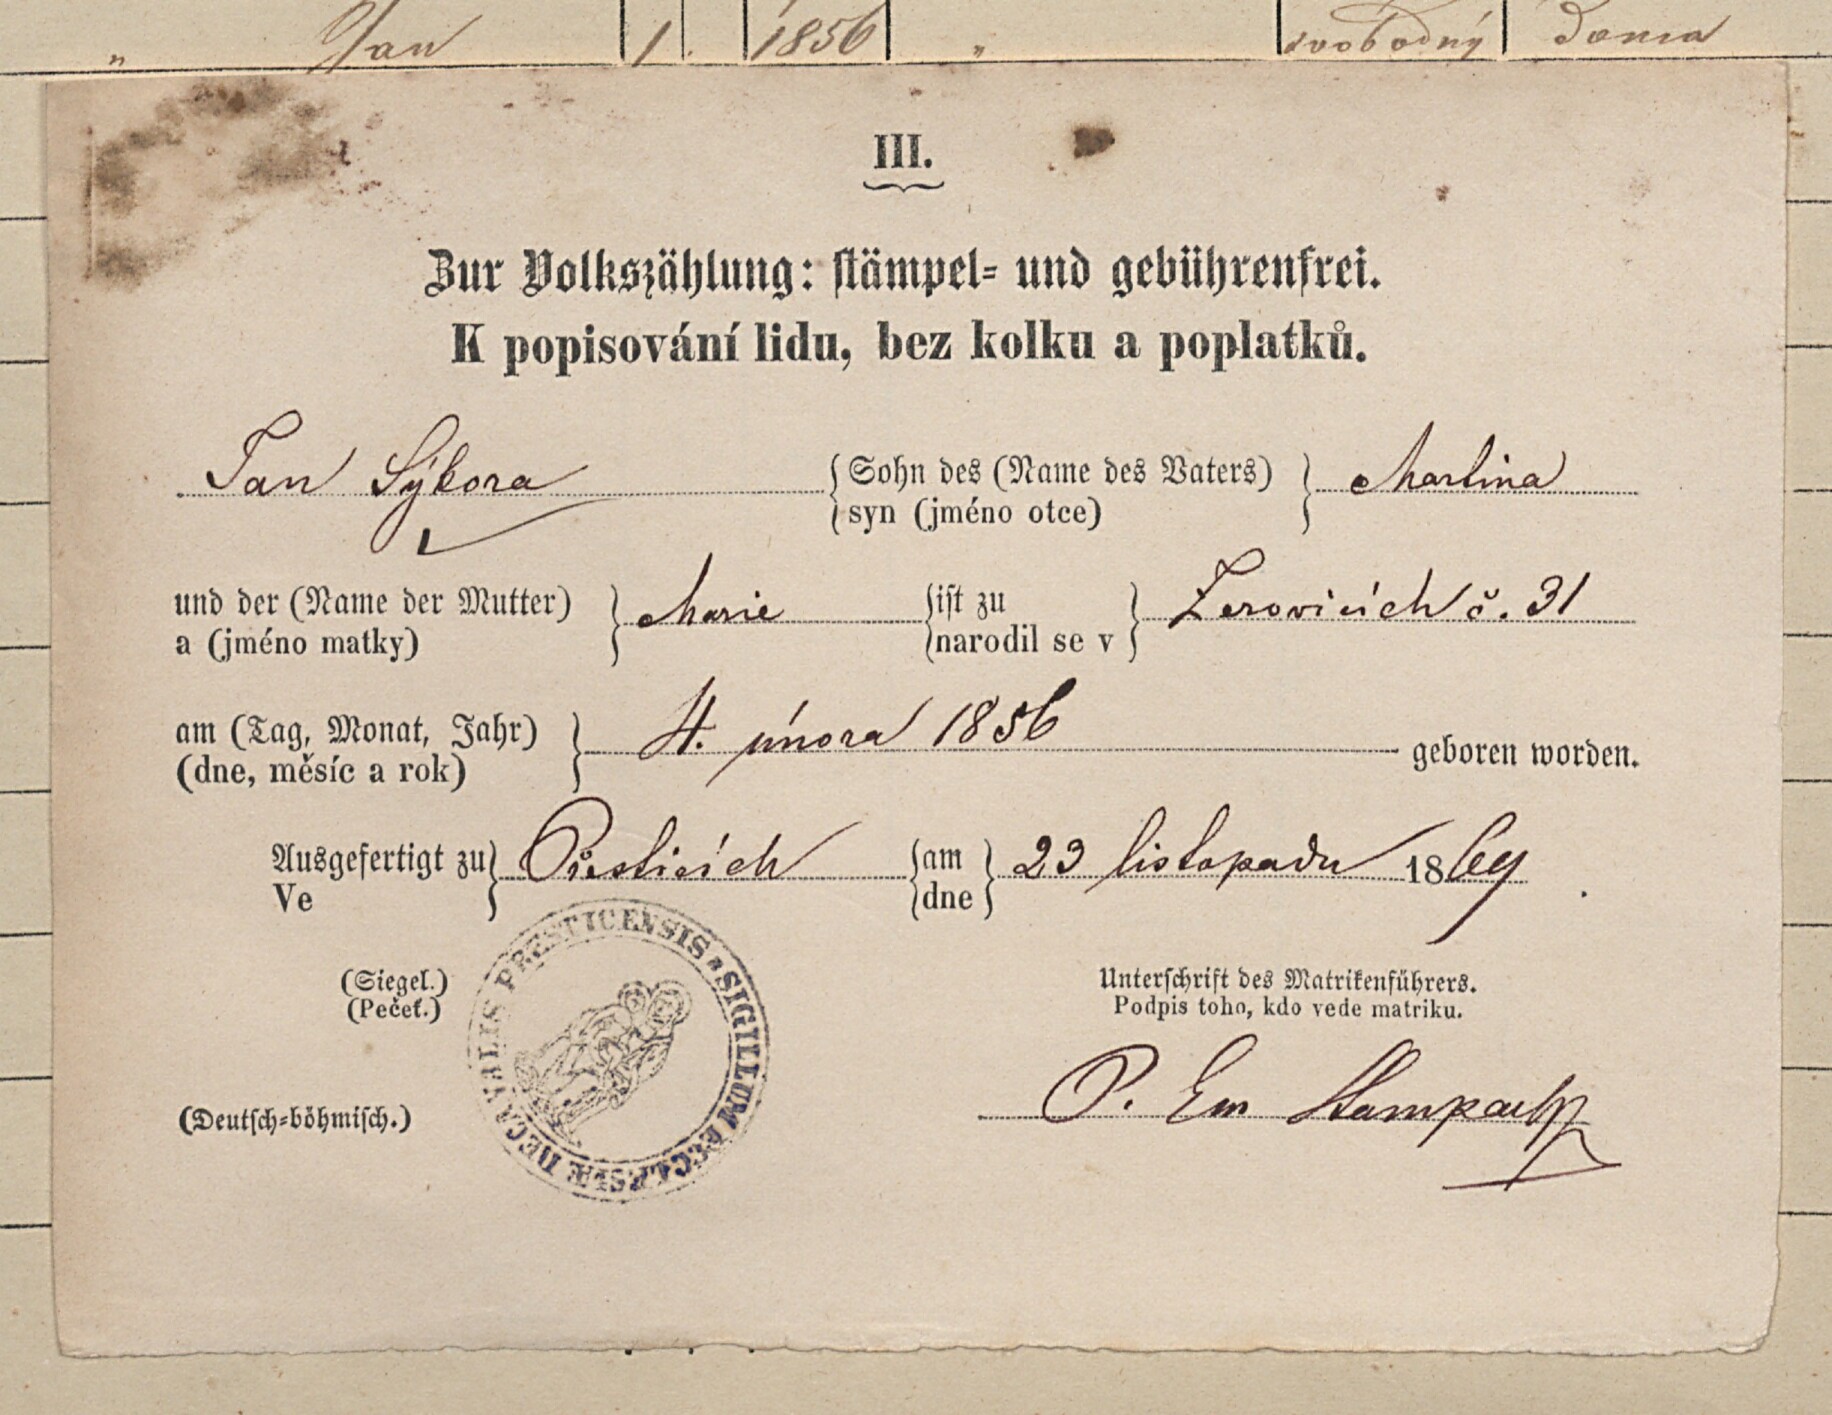 " Jan 1. 1856 " svobodný doma
III.
Zur Volkszählung: stämpel- und gebührenfrei.
K popisování lidu, bez kolku a poplatků.
Jan Sýkora { Sohn des (Name des Vaters) } Martina
syn (jméno otce)
und der (Name der Mutter) } Marie { ist zu } Zerovicích č. 31
a (jméno matky) narodil se v
am (Tag, Monat, Jahr) } 4. února 1856 geboren worden.
(dne, měsíc a rok)
Ausgefertigt zu } Přesticích { am } 23 listopadu 1869.
Ve dne
(Siegel.)
(Pečeť.)
SIGILLUM ECCLESIÆ DECANALIS PRESTICENSIS
Unterschrift des Matrikenführers.
Podpis toho, kdo vede matriku.
P. Em
(Deutsch-böhmisch.)